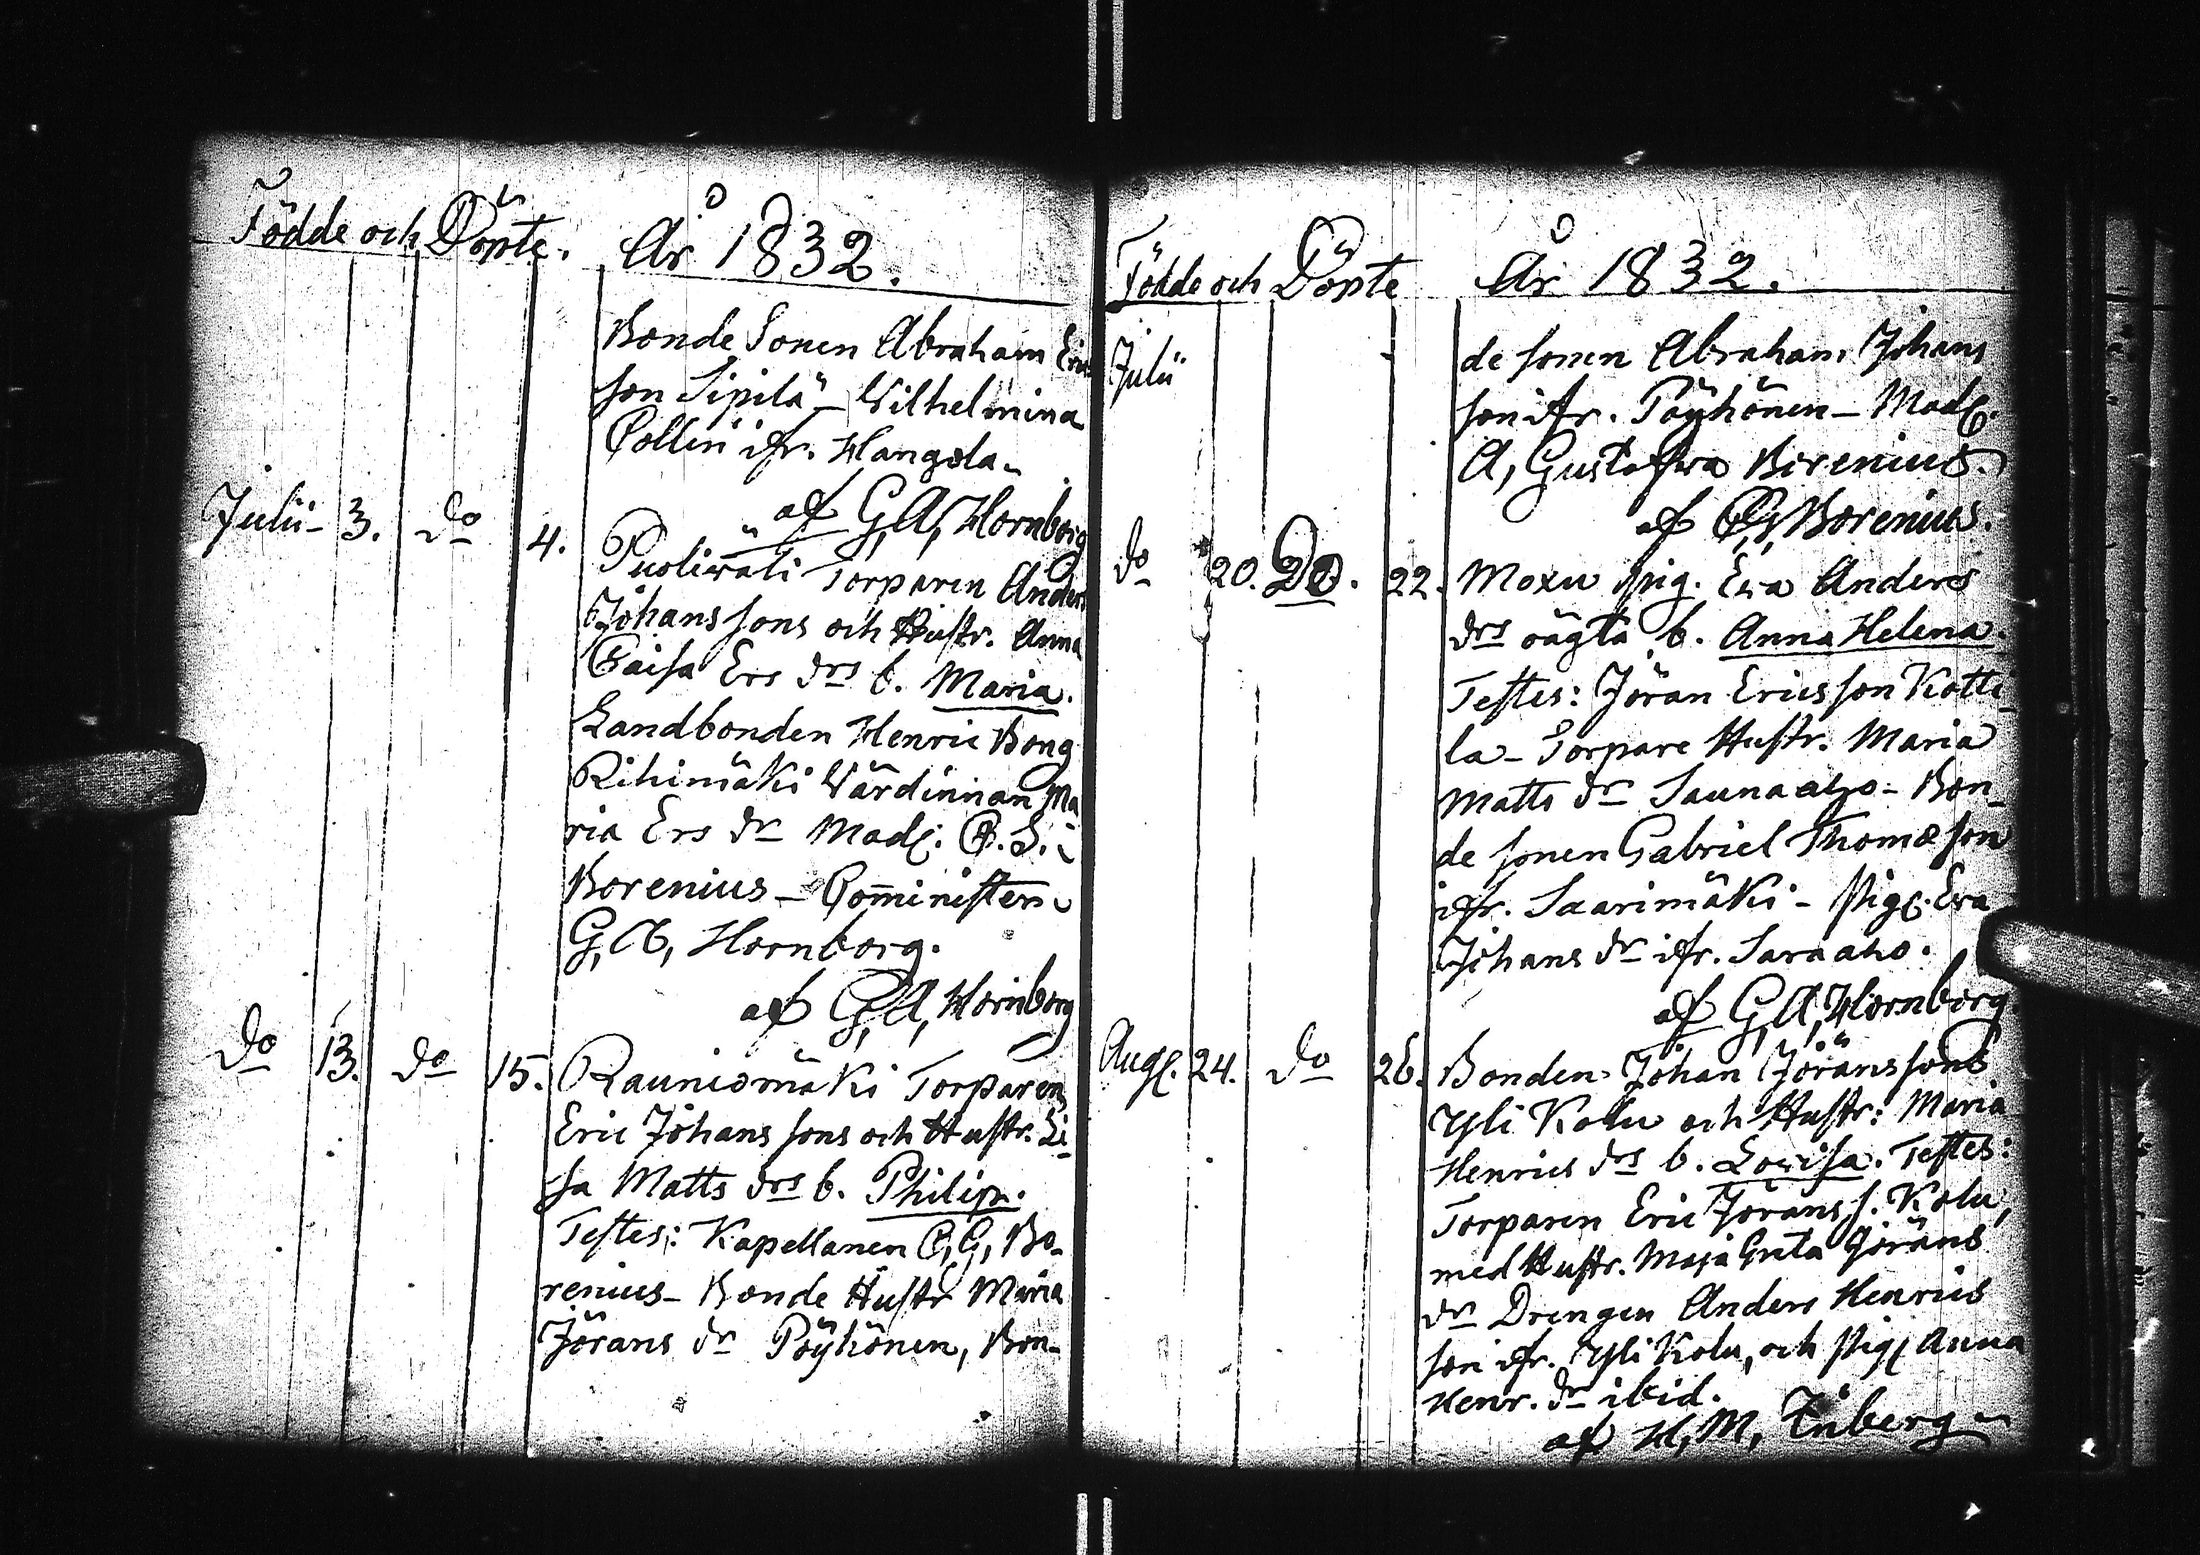 Födde och Döpte. År 1832.
Bonde Sonen Abraham Erics
son Sipilä - Wilhelmina
Collin ifr. Kangola.
af G, A, Hornborg
Julii - 3. do 4. Puoliwäli Torparen Anders
Johans sons och Hustr. Anna
Caisa Ers drs b. Maria.
Landbonden Henric Bong
Rihimäki Värdinnan Ma
ria Ers dr Madl: C. S.
Borenius - Com̄inistern
G, A, Hornborg.
af G, A, Hornborg
do 13. do 15. Rauniomäki Torparen
Eric Johans sons och Hustr. Li-
sa Matts drs b. Philip.
Testes: Kapellanen C, G, Bo-
renius - Bonde Hustr Maria
Jörans dr Pöyhönen, Bon-
Födde och Döpte År 1832.
Julii de sonen Abraham Johans
son ifr. Pöyhönen - Madl.
A, Gustafwa Borenius.
af C, G, Borenius.
do 20. Do. 22. Moxu pig. Eva Anders
drs oägta b. Anna Helena.
Testes: Jöran Ericsson Kotti-
la - Torpare Hustr. Maria
Matts dr Saunaaho - Bon-
de sonen Gabriel Thomæ son
ifr. Saarimäki - pig. Eva
Johans dr ifr. Saraaho.
af G, A, Hornborg.
Aug. 24. do 26. Bonden Johan Jöranssons
Yli Kolu och Hustr: Maria
Henrics drs b. Lovisa. Testes:
Torparen Eric Jörans s. Kolu,
med Hustr. Maja Greta Jörans
dr Drengen Anders Henrics
son ifr. Yli Kolu, och pig Anna
Henr. dr ibid.
af H, M,